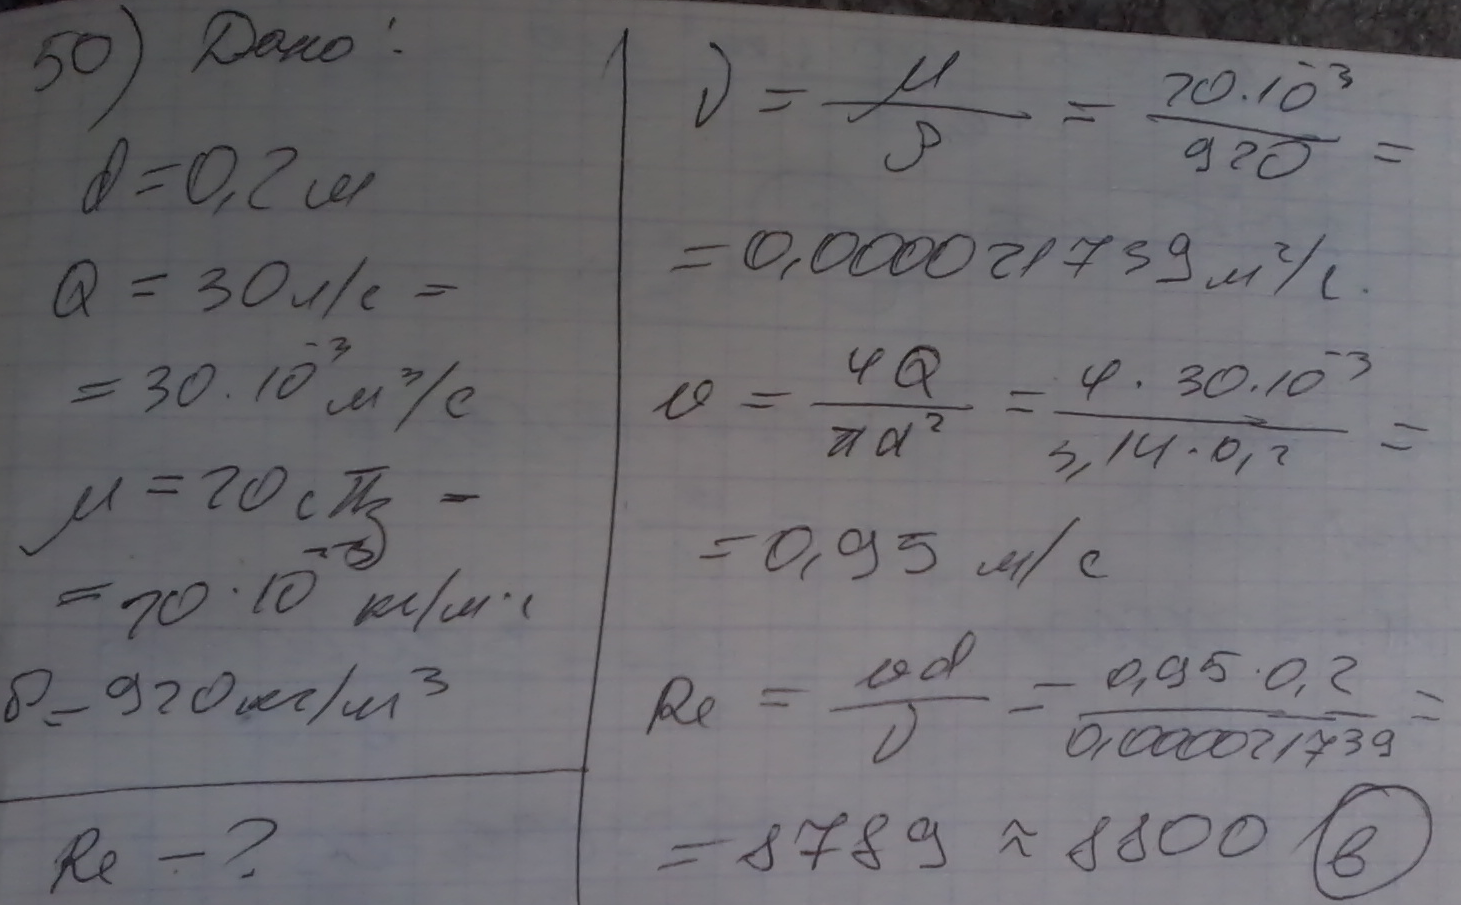 50) Дано:
d = 0,2 м
Q = 30 л/с =
= 30·10⁻³ м³/с
μ = 20 сПз =
= 20·10⁻³ кг/м·с
ρ = 920 кг/м³
Re – ?
ν = μ/ρ = 20·10⁻³/920 =
= 0,000021739 м²/с.
υ = 4Q/πd² = 4·30·10⁻³/3,14·0,2 =
= 0,95 м/с
Re = υd/ν = 0,95·0,2/0,000021739 =
= 8789 ≈ 8800 (в)